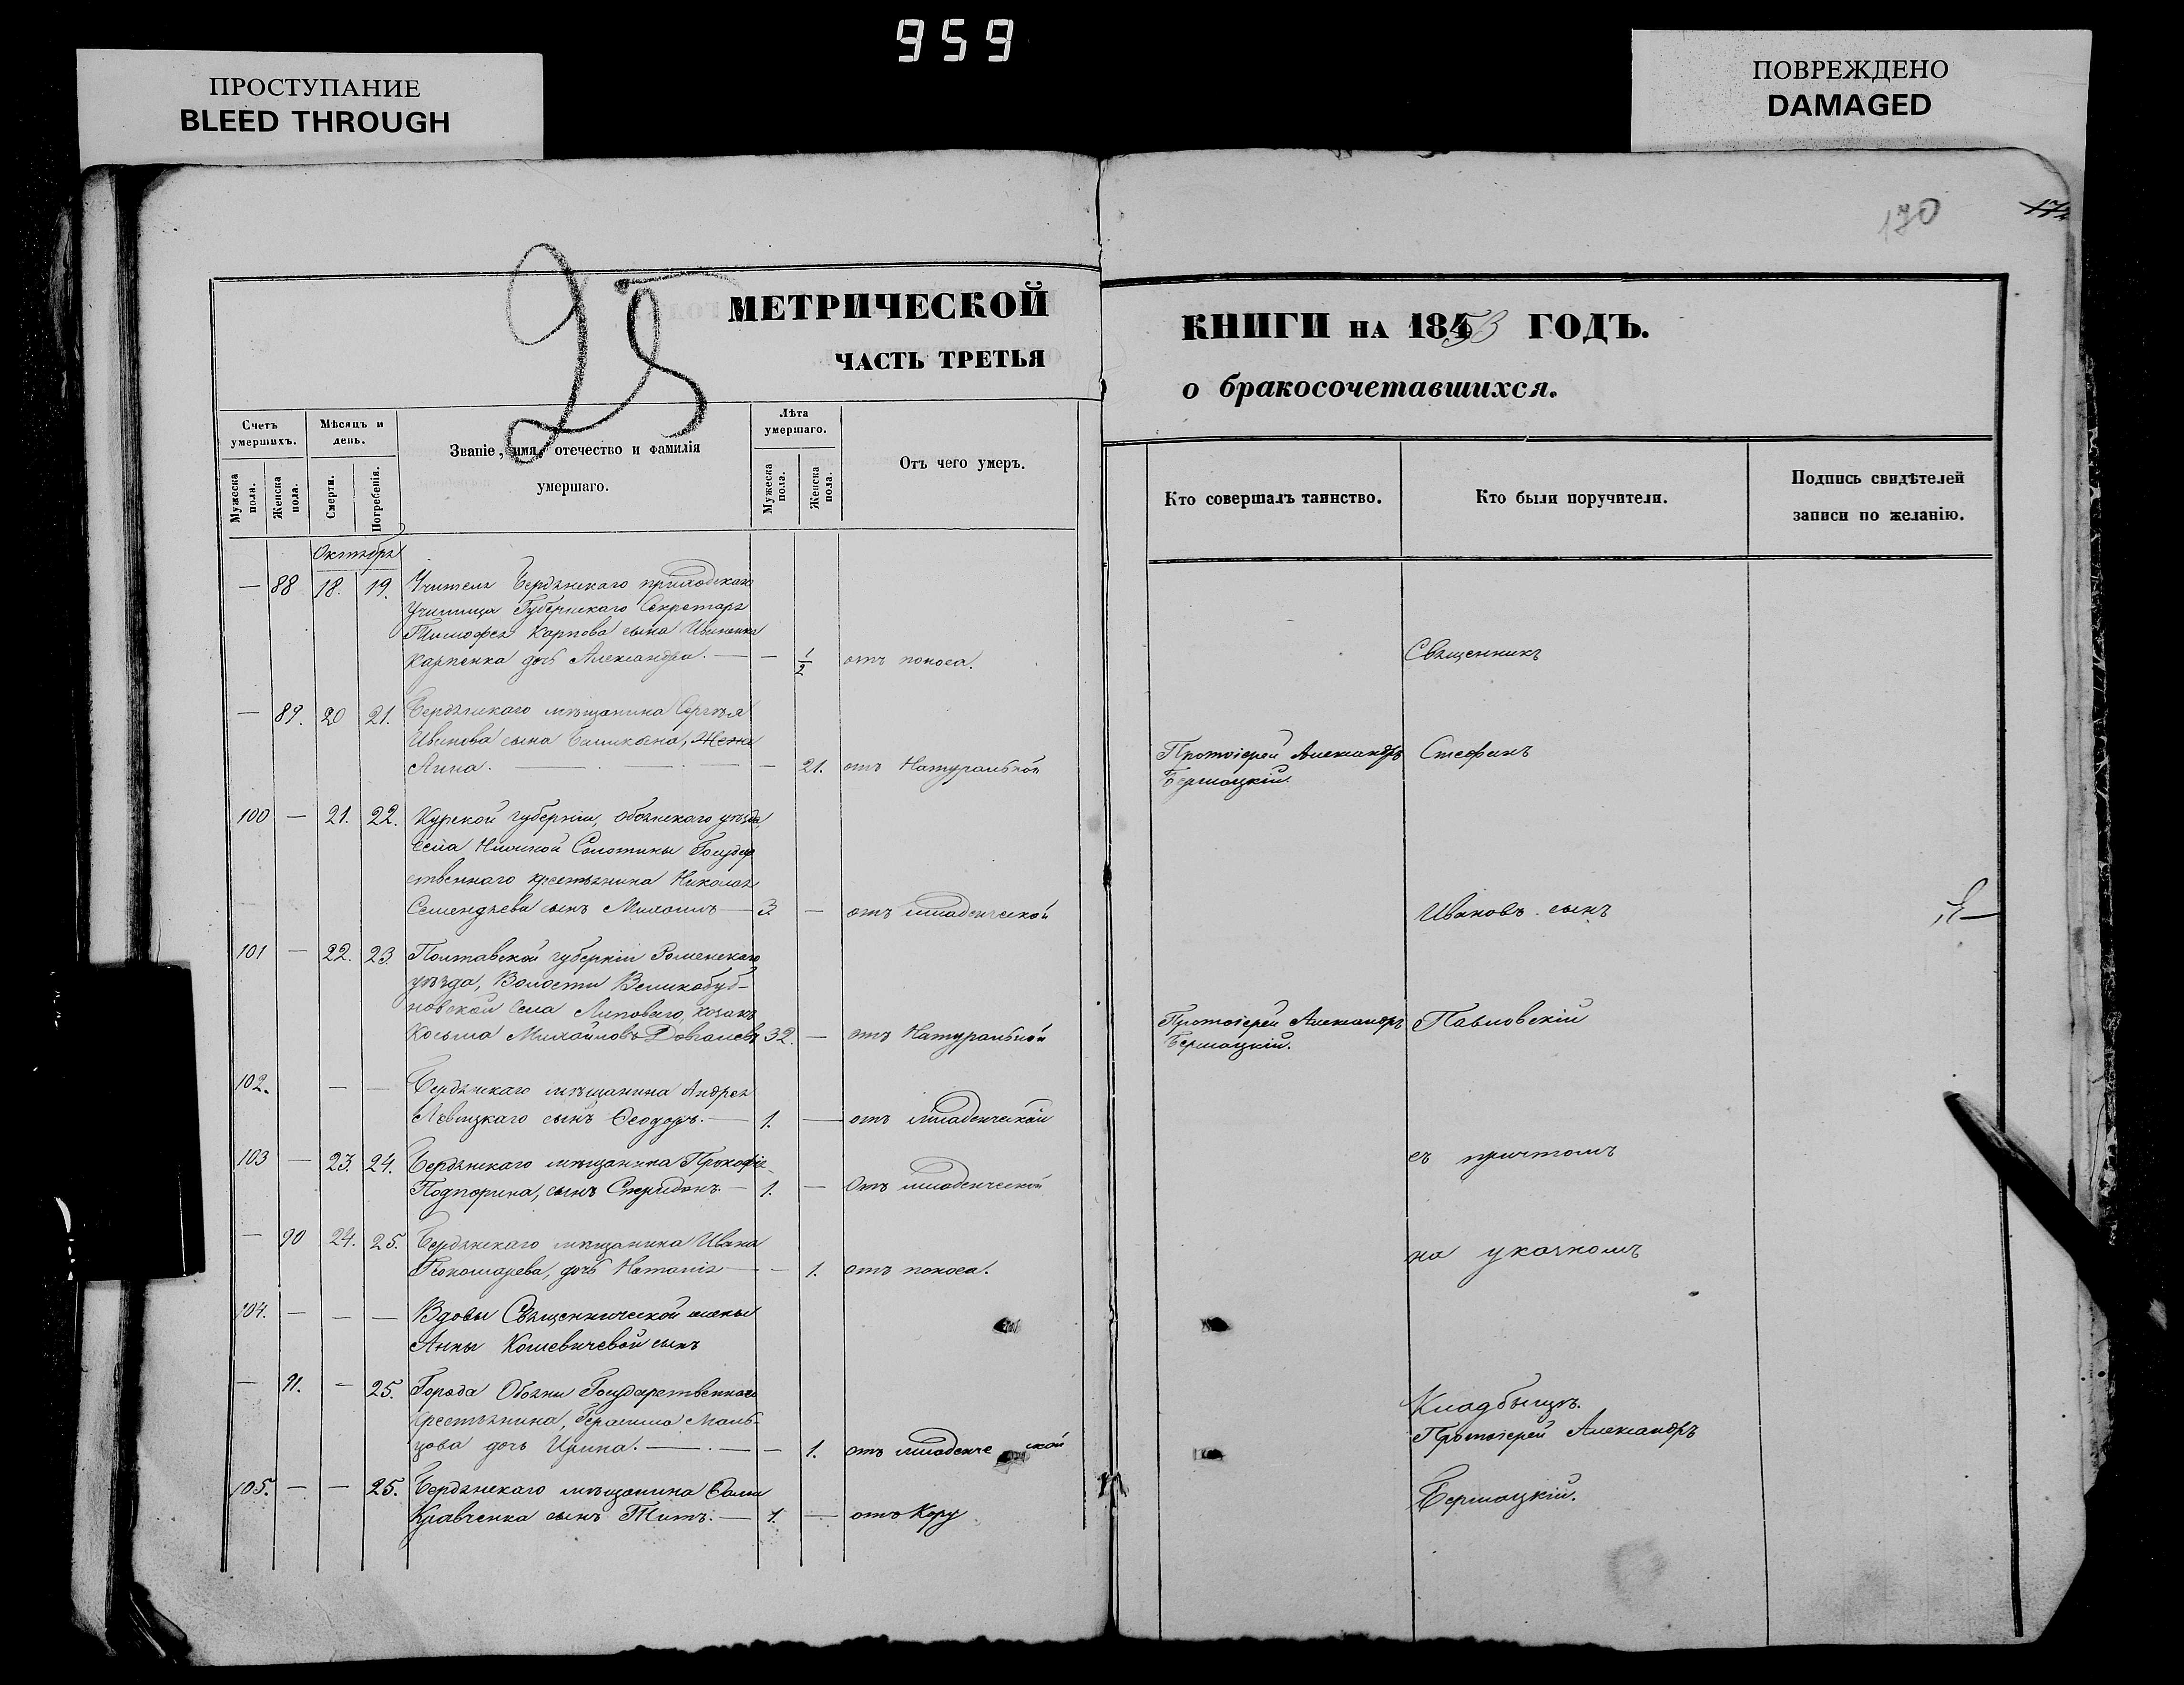 959
ПРОСТУПАНИЕ
BLEED THROUGH
ПОВРЕЖДЕНО
DAMAGED
170
25
МЕТРИЧЕСКОЙ
ЧАСТЬ ТРЕТЬЯ
Счетъ умершихъ.
Мѣсяцъ и день.
Званіе, имя, отечество и фамилія умершаго.
Лѣта умершаго.
Отъ чего умеръ.
Мужеска пола.
Женска пола.
Смерти.
Погребенія.
Мужеска пола.
Женска пола.
Октябрь
— 88 18. 19. Учителя Бердянскаго приходскаго
Училища Губернскаго Секретаря
Тимофея Карпова сына
Карпенка дочь Александра. — — 1/2 отъ поноса.
— 89. 20 21. Бердянскаго мѣщанина Сергѣя
Иванова сына жена
Анна. — — 21. отъ Натуральной
100 — 21. 22. Курской губерніи, обоянскаго уѣзда,
Села Нижней Солотины Государ
ственнаго крестьянина Николая
Семендяева сынъ Михаилъ — 3 — отъ младенческой
101 — 22. 23. Полтавской губерніи Роменскаго
уѣзда, Волости Великобуб-
новской села Липоваго, козакъ
Косьма Михайловъ Довгалевъ 32. — отъ Натуральной
102. — — Бердянскаго мѣщанина Андрея
Левицкаго сынъ Ѳеодоръ. — 1. — отъ младенческой
103 — 23. 24. Бердянскаго мѣщанина Прокофія
Подпорина, сынъ Спиридонъ. — 1. — Отъ младенческой
— 90 24. 25. Бердянскаго мѣщанина Ивана
Пономарева, дочь Наталія — — 1. отъ поноса.
104. — — — Вдовы Священнической жены
Анны Кошевичевой сынъ
— 91. — 25. Города Обояни Государственнаго
крестьянина, Герасима Маль-
цова дочь Ирина. — — 1. отъ младенческой
105. — — 25. Бердянскаго мѣщанина Ѳомы
Кравченка сынъ Титъ. — 1. — отъ Кору
КНИГИ НА 18453 ГОДЪ.
о бракосочетавшихся.
Кто совершалъ таинство.
Кто были поручители.
Подпись свидѣтелей записи по желанію.
Священникъ
Протоіерей Александръ Стефанъ
Бермацкій.
Ивановъ сынъ
Протоіерей Александръ Павловскій
Бермацкій.
съ причтомъ
на указномъ
Кладбищѣ.
Протоіерей Александръ
Бермацкій.